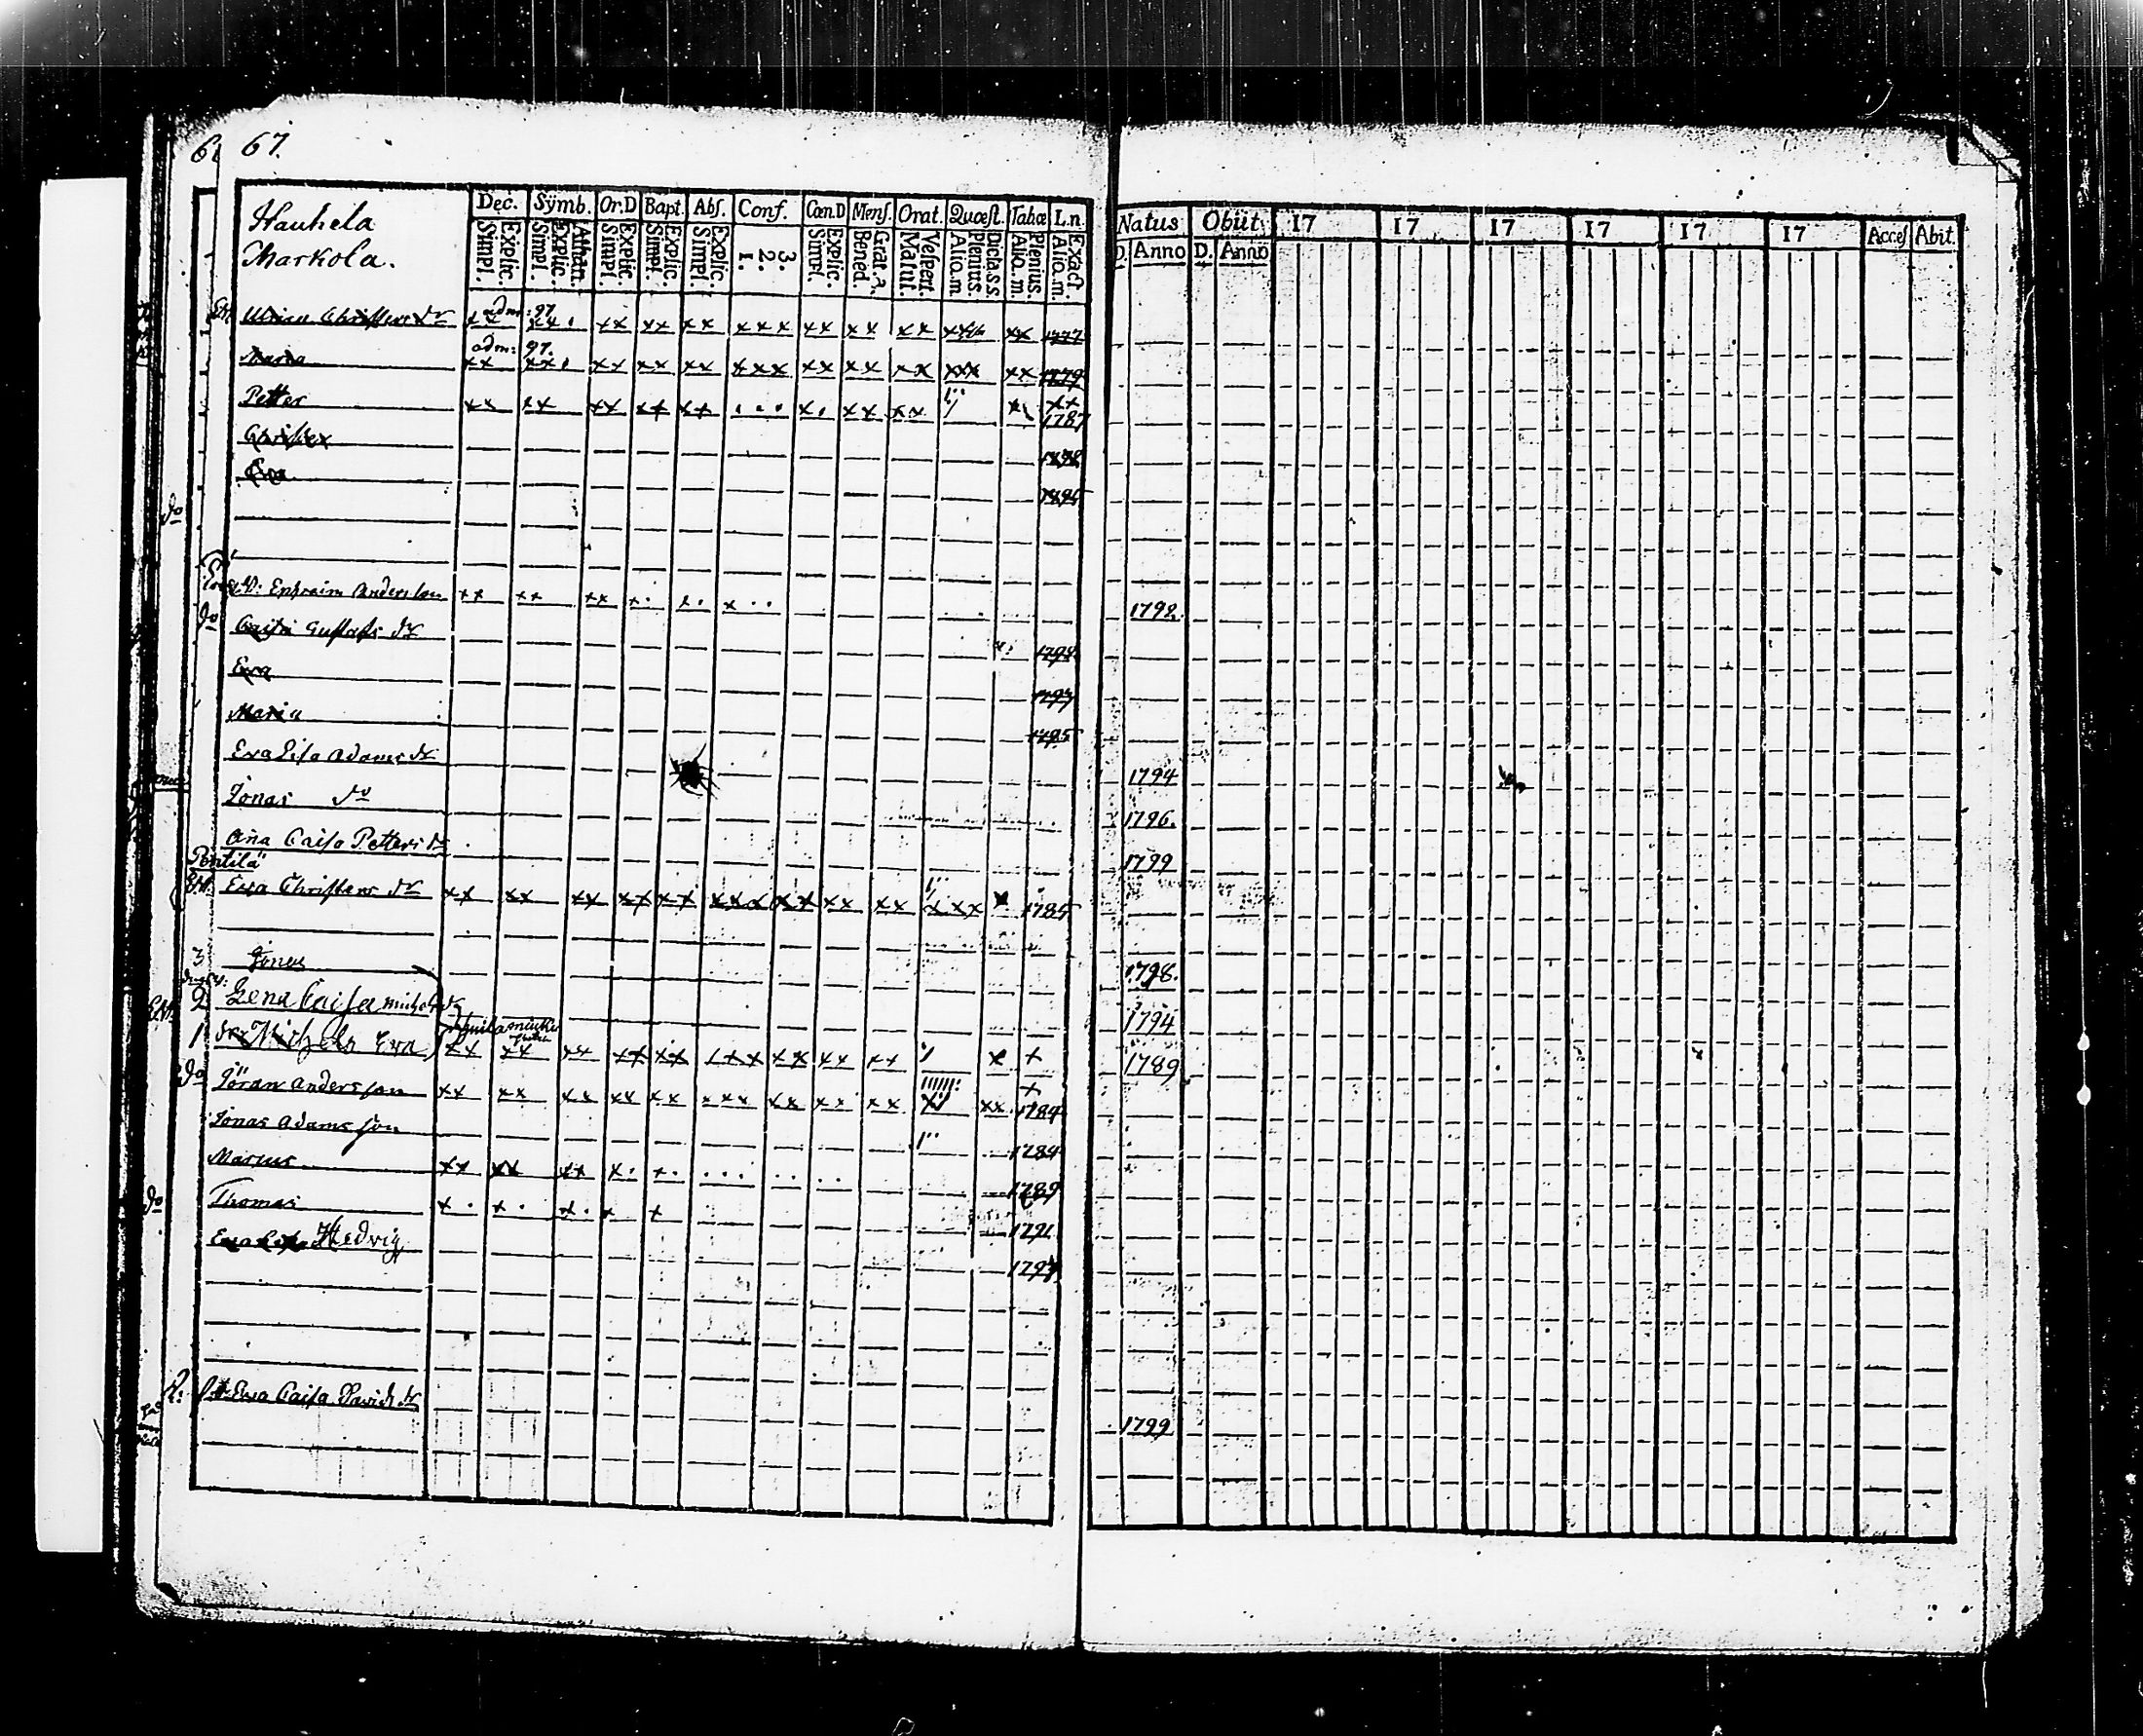 67.
Hauhela
Markola.
Dec. Symb. Or.D Bapt. Abs. Conf. Cœn.D Mens. Orat. Quæst. Tabæ I.n. Natus Obiit 17 17 17 17 17 17 Acces Abit.
Explic. Simpl. Athan. Explic. Simpl. Explic. Simpl. Explic. Simpl. Explic. Simpl. 3. 2. 1. Explic. Simpl. Grat. a. Bened. Vespert. Matut. Dicta s.s. Plenius. Alio. m Plenius. Alio. m. Exact. Alio. m. D. Anno D. Anno
adm: 97.
Christers dr xx xx xx xx xxx xx xx xx xx 1777
adm: 97.
Maria xx xx xx xx xx xxx xx xx xx xxx xx 1779
Petter xx xx xx xx xx ... x. xx xx 1787
Christer
Eva 1795
Ephraim Andersson xx xx xx x. x. x.. 1798.
do Caisa Gustafs dr
Eva 1797
Maria 1795
Eva Lisa Adams dr 1794
Jonas do 1796.
Aña Caisa Petters dr 1799
Pentilä
Eva Christers dr xx xx xx xx xx xxx xx xx xx xxx x 1785
3 Jonas 1798.
2 Lena Caisa Michels dr 1794
1 Michels Eva xx xx xx xx xx xxx xx xx xx x + 1789
do Jöran Andersson xx xx xx xx xx xxx xx xx xx xx 1784
Jonas Adams son 1784
Marcus xx xx xx x. x. ... .. .. 1789
do Thomas x. x. x. x x 1791
Eva Lisa Hedvig 1797
Ewa Caisa Davids dr 1799